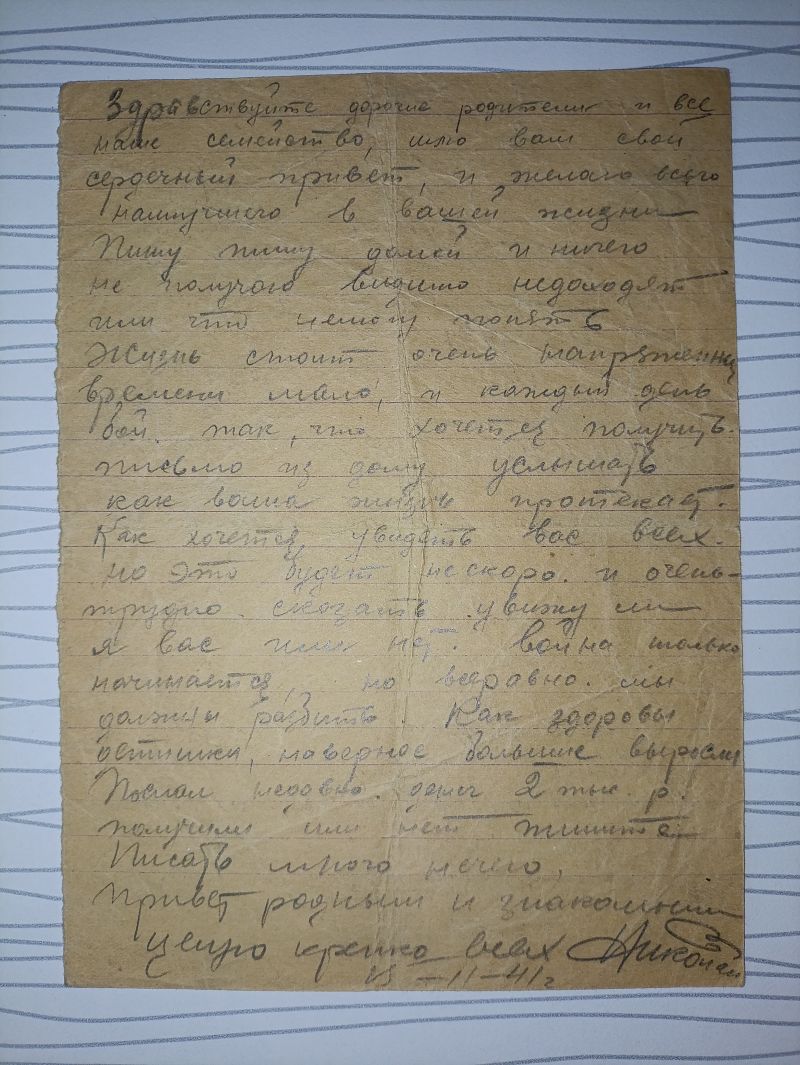 Здравствуйте дорогие родители и все
наше семейство, шлю вам свой
сердечный привет, и желаю всего
наилучшего в вашей жизни
Пишу пишу домой и ничего
не получаю видимо недоходят
или что немогу понять
Жизнь стоит очень
времени мало, и каждый день
бой. так, что хочется получить.
письмо из дому услышать
как ваша жизнь протекает.
Как хочется увидеть вас всех.
но это будет нескоро. и очень-
трудно. сказать. увижу ли
я вас или нет. война только
начинается, но всеравно. мы
должны разбить. Как здоровы
наверное большие выросли
Послал недавно. денег 2 тыс. р.
получили или нет пишите
Писать много нечего,
Привет родным и знакомым
Целую крепко всех Николай
-11-41г